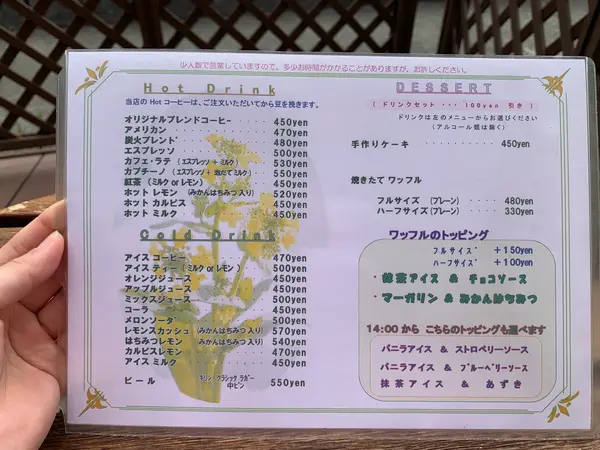 少人数で営業していますので、多少お時間がかかることがありますが、お許しください。
Hot Drink
当店の Hot コーヒーは、ご注文いただいてから豆を挽きます。
オリジナルブレンドコーヒー ・・・・ 450yen
アメリカン ・・・・・・・・ 470yen
炭火ブレンド ・・・・・・・ 480yen
エスプレッソ ・・・・・・・ 500yen
カフェ・ラテ (エスプレッソ + ミルク) 530yen
カプチーノ (エスプレッソ + 泡だて ミルク) 550yen
紅茶 (ミルク or レモン) ・・・ 450yen
ホット レモン (みかんはちみつ 入り) 520yen
ホット カルピス ・・・・・・ 450yen
ホット ミルク ・・・・・・・ 450yen
Cold Drink
アイス コーヒー ・・・・・・ 470yen
アイス ティー (ミルク or レモン) ・ 500yen
オレンジジュース ・・・・・・ 450yen
アップルジュース ・・・・・・ 450yen
ミックスジュース ・・・・・・ 500yen
コーラ ・・・・・・・・・・ 450yen
メロンソーダ ・・・・・・・・ 500yen
レモンスカッシュ (みかんはちみつ 入り) 570yen
はちみつレモン (みかんはちみつ 入り) 540yen
カルピスレモン ・・・・・・・ 470yen
アイス ミルク ・・・・・・・ 450yen
ビール キリン クラシック ラガー 中ビン 550yen
DESSERT
( ドリンクセット ・・・ 100yen 引き )
ドリンクは左のメニューからお選びください
(アルコール類は除く)
手作りケーキ ・・・・・・・・ 450yen
焼きたて ワッフル
フルサイズ (プレーン) ・・・・ 480yen
ハーフサイズ (プレーン) ・・・ 330yen
ワッフルのトッピング
フルサイズ +150yen
ハーフサイズ +100yen
・抹茶アイス & チョコソース
・マーガリン & みかんはちみつ
14:00 から こちらのトッピングも選べます
バニラアイス & ストロベリーソース
バニラアイス & ブルーベリーソース
抹茶アイス & あずき